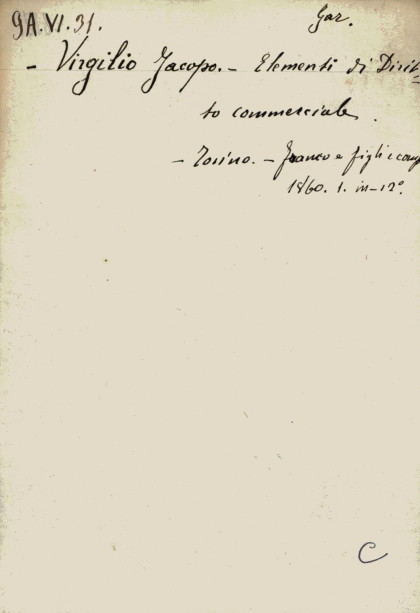 9A.VI.31.
Gar.
- Virgilio Jacopo. - Elementi di Dirit-
to commerciale.
- Torino. - Franco e figli e comp
1860. 1. in-12°.
C